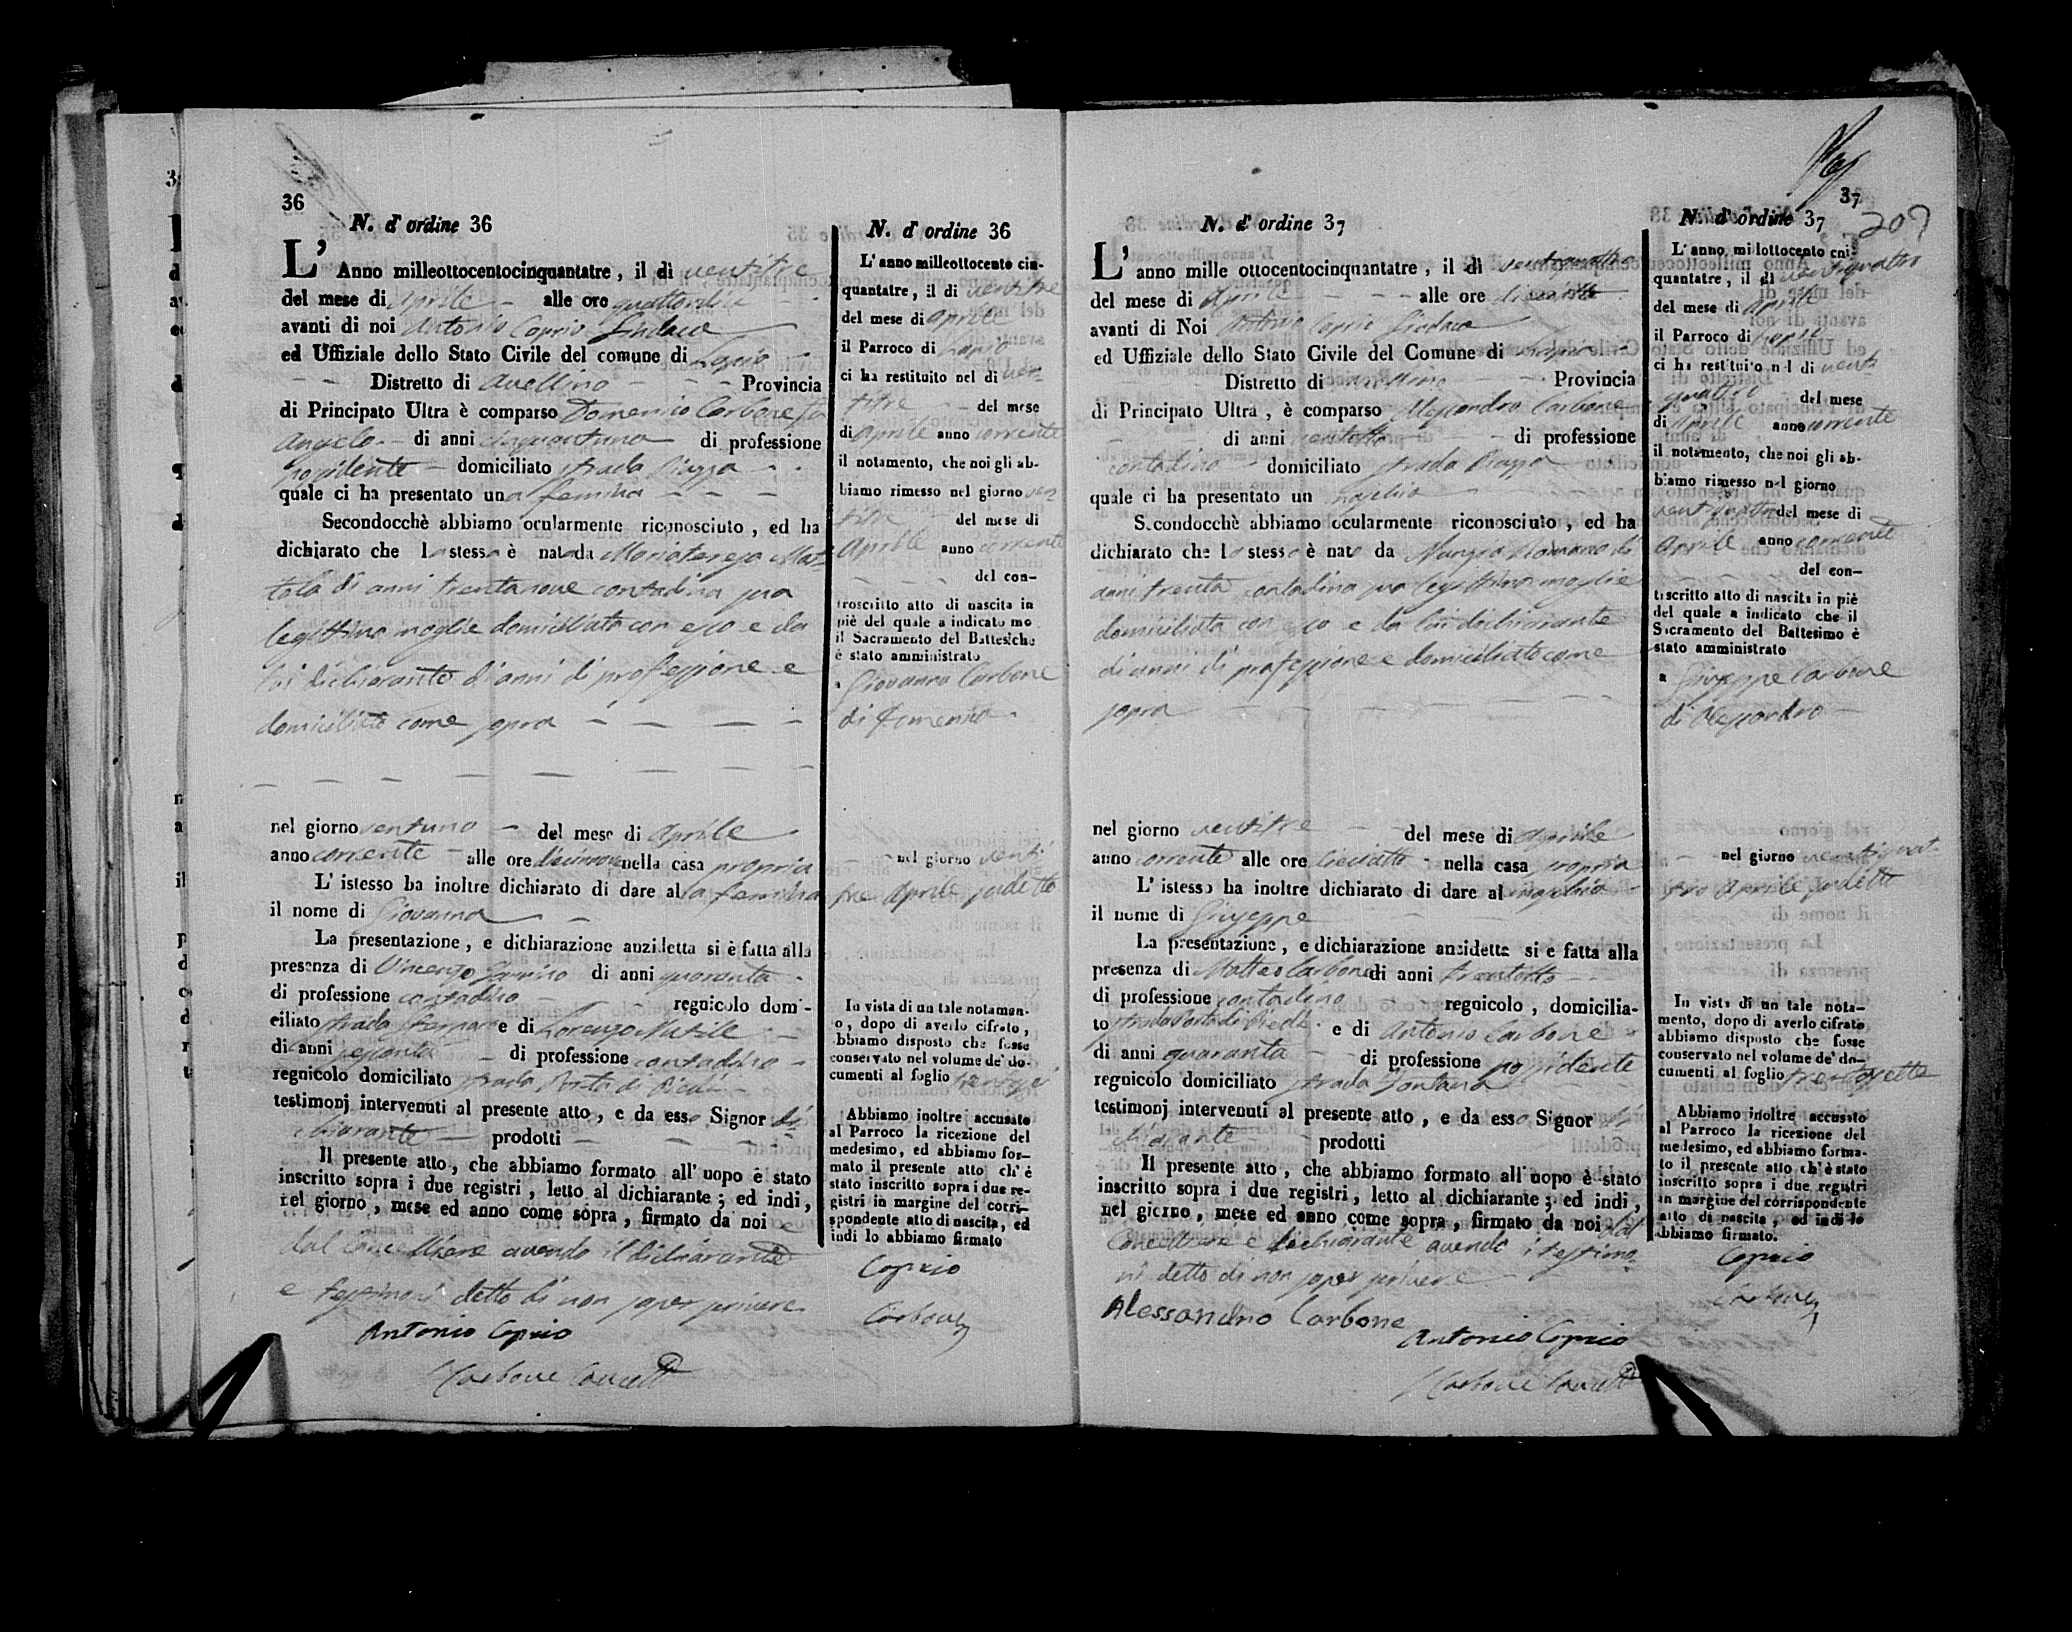 36
N. d' ordine 36
L' Anno milleottocentocinquantatre, il di ventitre
del mese di aprile alle ore quattordici
avanti di noi Antonio Coprio Sindaco
ed Uffiziale dello Stato Civile del comune di Lapio
Distretto di Avellino Provincia
di Principato Ultra è comparso Domenico Carbone fu
Angelo di anni cinquantuno di professione
possidente domiciliato strada Piazza
quale ci ha presentato una femina
Secondocchè abbiamo ocularmente riconosciuto, ed ha
dichiarato che la stessa è nata da Mariateresa
di anni trentanove contadina sua
legittima moglie domiciliata con esso e da
lui dichiarante di anni di professione e
domiciliato come sopra
nel giorno ventuno del mese di Aprile
anno corrente alle ore diecinove nella casa propria
L' istesso ha inoltre dichiarato di dare alla femina
il nome di Giovanna
La presentazione, e dichiarazione anzidetta si è fatta alla
presenza di Vincenzo di anni quaranta
di professione contadino regnicolo domi-
ciliato strada e di Lorenzo
di anni sessanta di professione contadino
regnicolo domiciliato strada Porta di
testimonj intervenuti al presente atto, e da esso Signor di
chiarante prodotti
Il presente atto, che abbiamo formato all' uopo è stato
inscritto sopra i due registri, letto al dichiarante; ed indi,
nel giorno, mese ed anno come sopra, firmato da noi e
dal Cancelliere avendo il dichiarante
e testimoni detto di non saper scrivere
Antonio Coprio
Carbone Cancell
N. d' ordine 36
L' anno milleottocento cin-
quantatre, il di ventitre
del mese di aprile
il Parroco di Lapio
ci ha restituito nel di ven-
titre del mese
di aprile anno corrente
il notamento, che noi gli ab-
biamo rimesso nel giorno ven-
titre del mese di
Aprile anno corrente
del con-
troscritto atto di nascita in
piè del quale a indicato mo
il Sacramento del Battesiche
è stato amministrato
a Giovanna Carbone
di Domenico
nel giorno venti
tre Aprile sudetto
In vista di un tale notamen-
o, dopo di averlo cifrato,
abbiamo disposto che fosse
conservato nel volume de' do-
cumenti al foglio trentasei
Abbiamo inoltre accusato
al Parroco la ricezione del
medesimo, ed abbiamo for-
mato il presente atto ch' è
stato inscritto sopra i due re-
gistri in margine del corri-
spondente atto di nascita, ed
indi lo abbiamo firmato
Coprio
Carbone
37
209
N. d' ordine 37
L' anno mille ottocentocinquantatre, il di ventiquattro
del mese di Aprile alle ore
avanti di Noi Antonio Coprio Sindaco
ed Uffiziale dello Stato Civile del Comune di Lapio
Distretto di Avellino Provincia
di Principato Ultra, è comparso Alessandro Carbone
di anni ventotto di professione
contadino domiciliato strada Piazza
quale ci ha presentato un maschio
Secondocchè abbiamo ocularmente riconosciuto, ed ha
dichiarato che lo stesso è nato da Nunzia Romano di
anni trenta contadina sua legittima moglie
domiciliata con esso e da lui dichiarante
di anni di professione e domiciliato come
sopra
nel giorno ventitre del mese di Aprile
anno corrente alle ore dieciotto nella casa propria
L' istesso ha inoltre dichiarato di dare al maschio
il nome di Giuseppe
La presentazione, e dichiarazione ansidetta si e fatta alla
presenza di Matteo Carbone di anni trentotto
di professione contadino regnicolo, domicilia-
to strada Porta di e di Antonio Carbone
di anni quaranta di professione possidente
regnicolo domiciliato strada Fontana
testimonj intervenuti al presente atto, e da esso Signor di
chiarante prodotti
Il presente atto, che abbiamo formato all' uopo è stato
inscritto sopra i due registri, letto al dichiarante; ed indi,
nel giorno, mese ed anno come sopra, firmato da noi dal
Cancelliere e dichiarante avendo i testimo-
ni detto di non saper scrivere
Alessandro Carbone
Antonio Coprio
Carbone Cancell
N. d' ordine 37
L' anno millottocento cni-
quantatre, il di ventiquattro
del mese di Aprile
il Parroco di Lapio
ci ha restituito nel di venti
quattro del mese
di Aprile anno corrente
il notamento, che noi gli ab-
biamo rimesso nel giorno
ventiquattro del mese di
Aprile anno corrente
del con-
troscritto atto di nascita in piè
del quale a indicato che il
Sacramento del Battesimo è
stato amministrato
a Giuseppe Carbone
di Alessandro
nel giorno ventiquat-
tro Aprile sudetto
In vista di un tale nota-
mento, dopo di averlo cifrato
abbiamo disposto che fosse
conservato nel volume de' do-
cumenti al foglio trentasette
Abbiamo inoltre accusato
al Parroco la ricezione del
medesimo, ed abbiamo forma-
to il presente atto ch' è stato
inscritto sopra i due registri
in margine del corrispondente
atto di nascita, ed indi lo
abbiamo firmato.
Coprio
Carbone